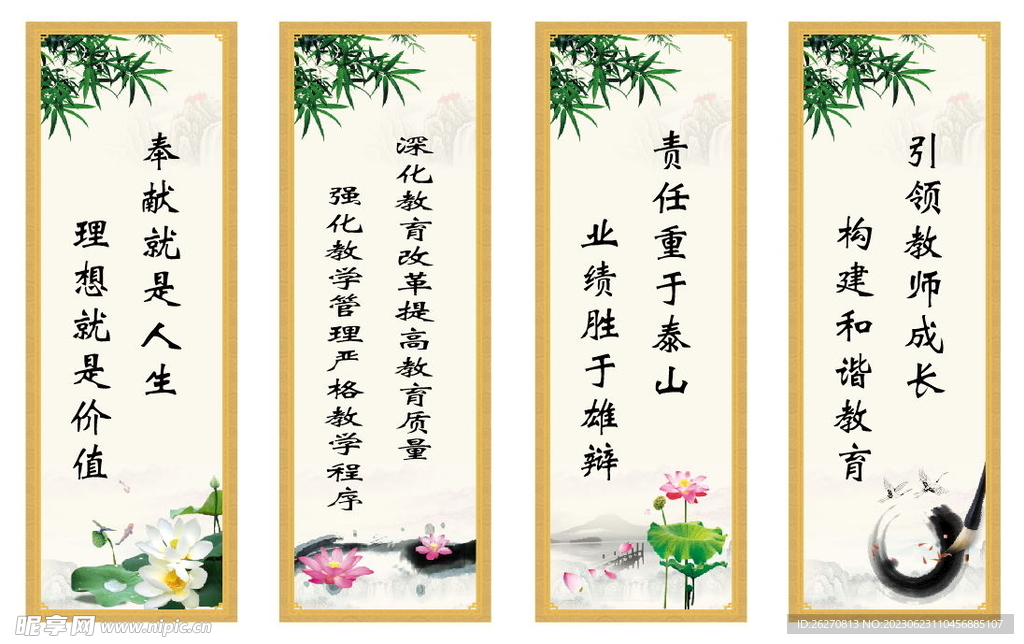 奉献就是人生
理想就是价值
深化教育改革提高教育质量
强化教学管理严格教学程序
责任重于泰山
业绩胜于雄辩
引领教师成长
构建和谐教育
昵享网 www.nipic.cn
ID:26270813 NO:20230623110456885107